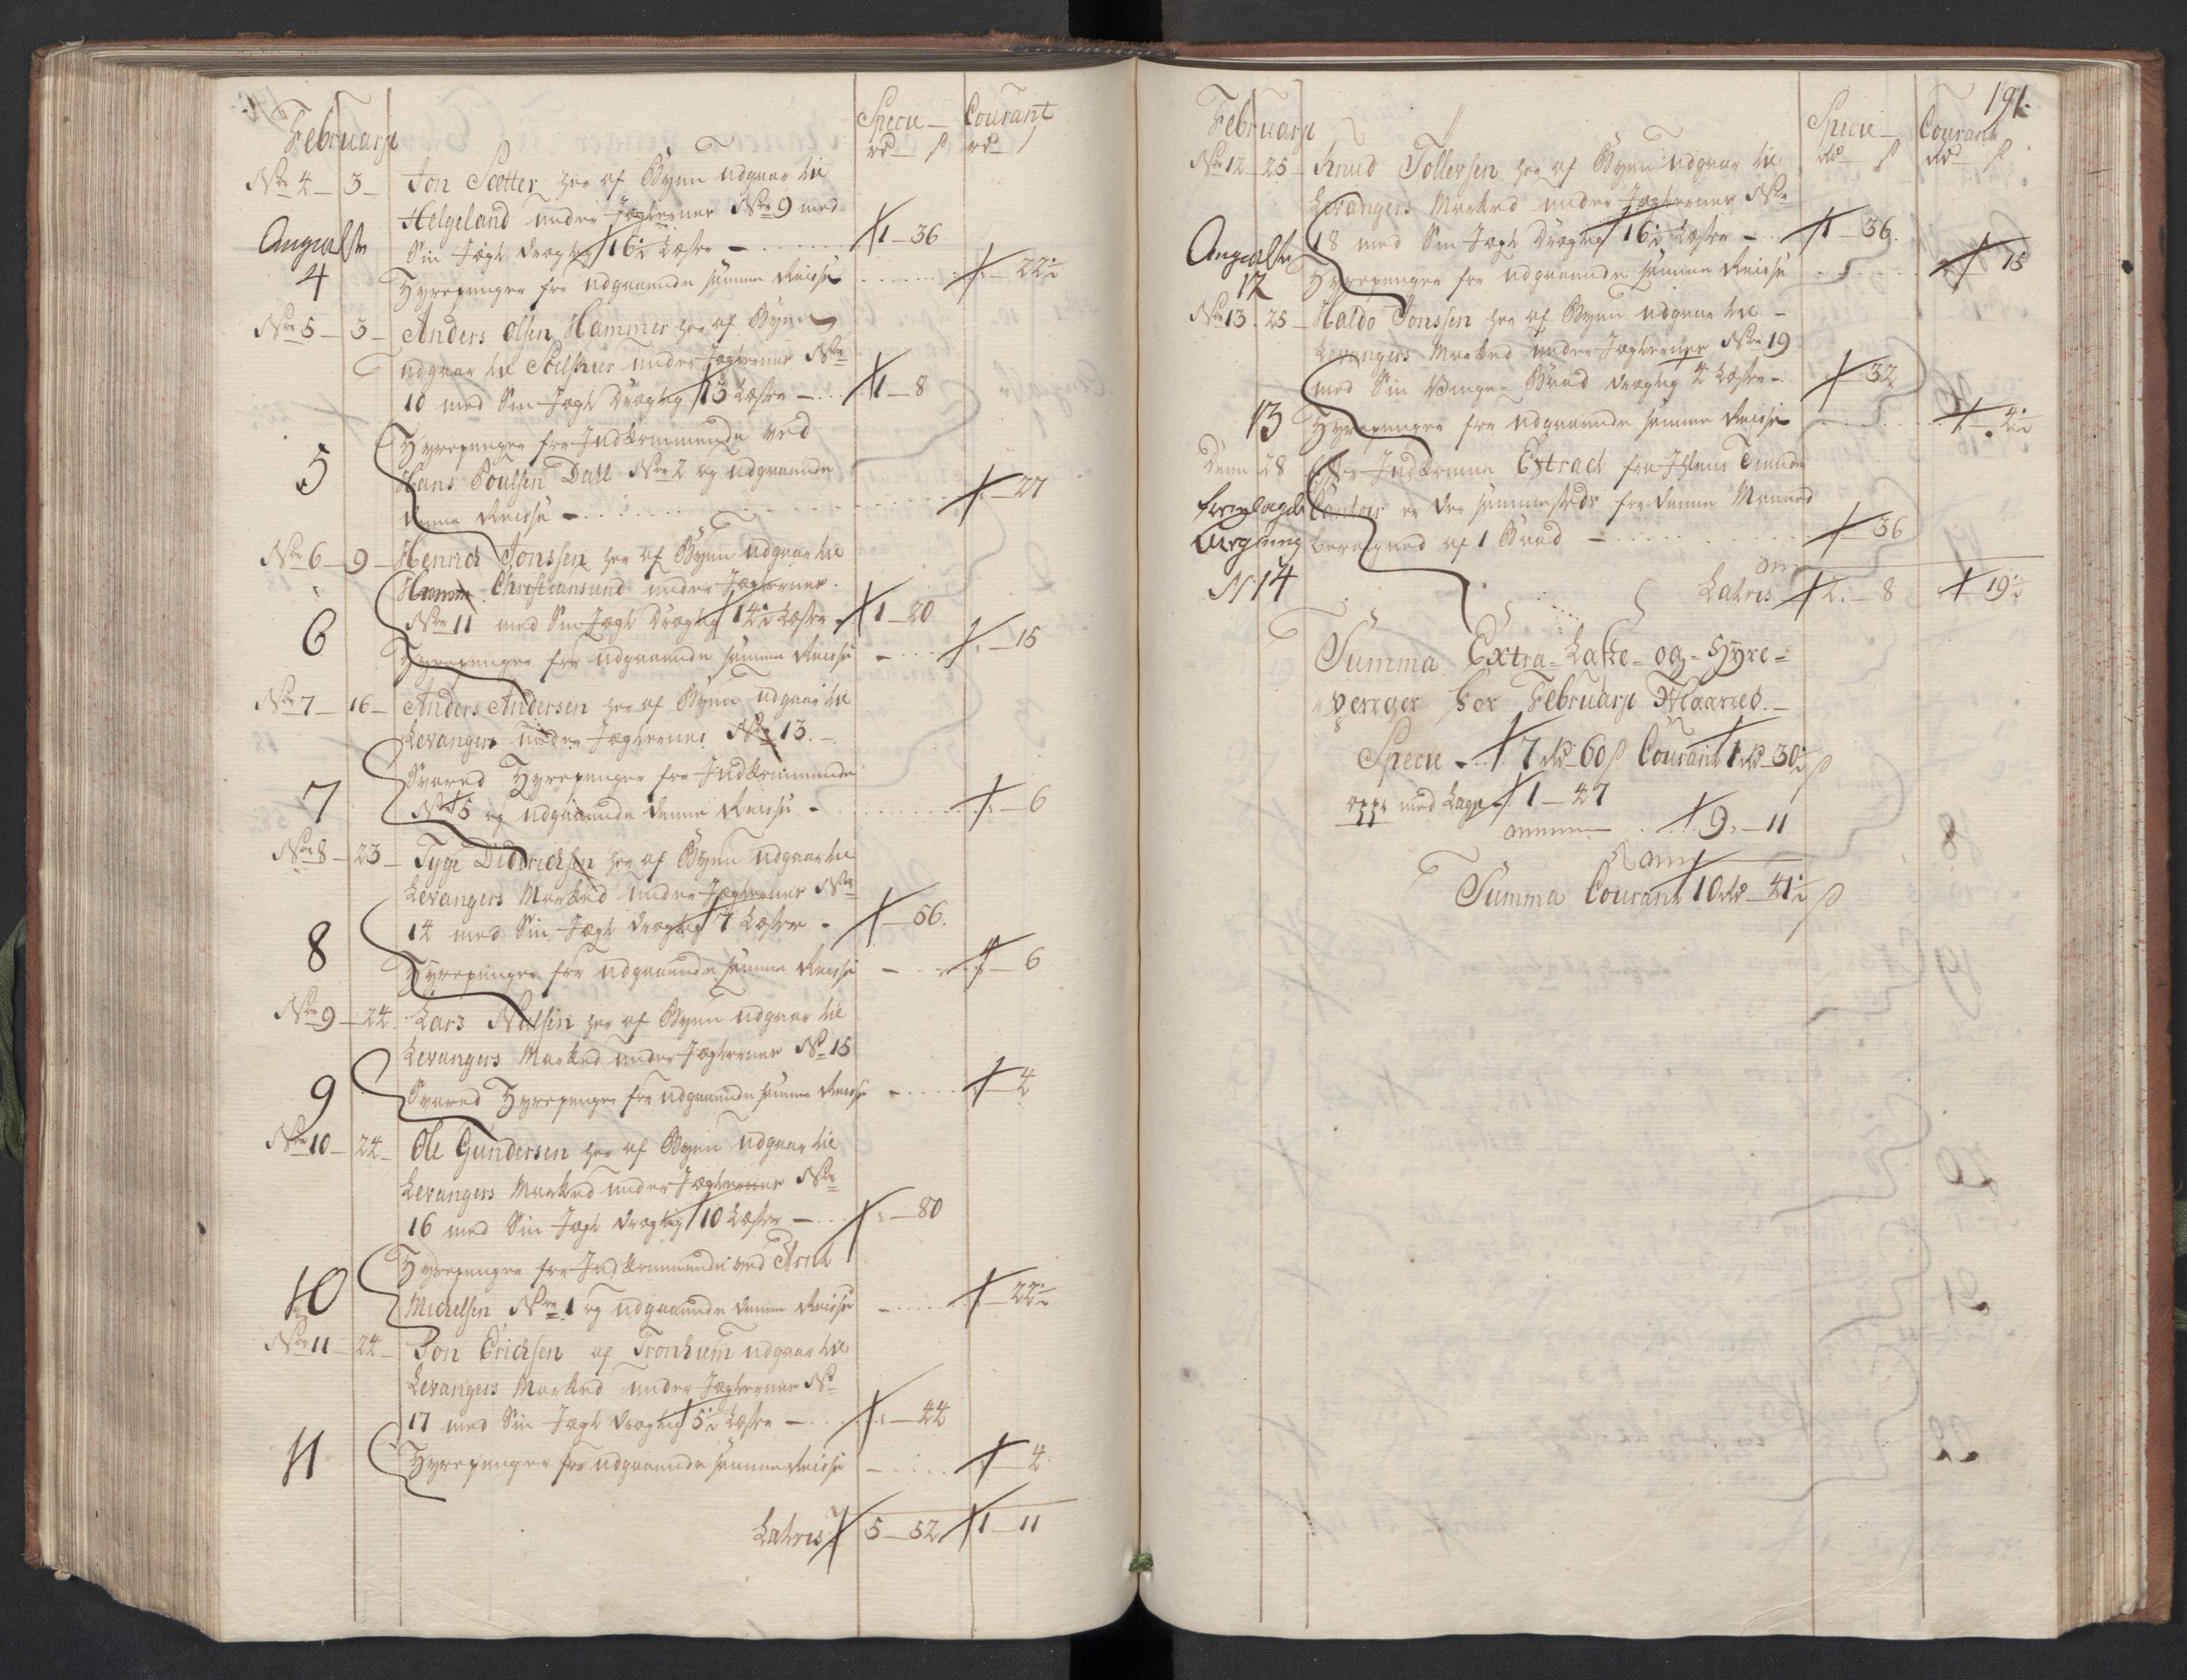 Februarji
Specie Courant
rd ß rd ß
No 4 3 Jon Sætter her af Byen udgaar til
Helgeland under Jægternes No 9 med
Sin Jægt drægtig 16½ Læster 1 36
Angivelse
4
Hyrepenger for udgaaende samme Reise 22½
No 5 3 Anders Olsen Hammer her af Byen
udgaar til under Jægternes No
10 med Sin Jægt Drægtig 13 Læster 1 8
Hyrepenger for Indkommende ved
5
Hans Poulsen Dall No 2 og udgaaende
denne Reise 27
No 6 9 Henrich Jonssen her af Byen udgaar til
Christiansund under Jægternes
No 11 med Sin Jægt Drægtig 14½ Læster 1 20
6
Hyrepenger for udgaaende samme Reise 15
No 7 16 Anders Andersen her af Byen udgaar til
Levanger under Jægternes No 13
Svared Hyrepenger for Indkommende
7
No 5 og udgaaende denne Reise 6
No 8 23 Tyge Didrichsen her af Byen udgaar til
Levangers Marked under Jægternes No
14 med Sin Jægt drægtig 7 Læster 56.
8
Hyrepenger for udgaaende samme Reise 6
No 9 24 Lars Nielsen her af Byen udgaar til
Levangers Marked under Jægternes No 15
9
Svared Hyrepenger for udgaaende samme Reise 4
No 10 24 Ole Gundersen her af Byen udgaar til
Levangers Marked under Jægternes No
16 med Sin Jægt drægtig 10 Læster 80
Hyrepenger for Indkommende ved Arnt
10
Michelsen No 1 og udgaaende denne Reise 22½
No 11 24 Jon Erichsen af Tronhiem udgaar til
Levangers Marked under Jægternes No
17 med Sin Jægt drægtig 5½ Læster 44
11
Hyrepenger for udgaaende samme Reise 4
Latris 5 52 1 11
191.
Februarji
Specie Courant
rd ß rd ß
No 12 25 Knud Tollevsen her af Byen udgaar til
Levangers Marked under Jægternes No
18 med Sin Jægt Drægtig 16½ Læster 1 36.
Angivelse
12
Hyrepenger for udgaaende samme Reise 15
No 13 25 Haldo Jonssen her af Byen udgaar til
Levangers Marked under Jægternes No 19
med Sin Baad drægtig 4 Læster 32
13
Hyrepenger for udgaaende samme Reise 4½
Denn 28 Efter Indkomne Extract fra Ihlens Tiende
Contoir er der sammesteds for denne Maaned
beregned af 1 Baad 36
N 14
Latris 2. 8 19½
Summa Extra-Læste- og- Hyre=
penger for Februarji Maaned.
Specie 7 rd 60 ß Courant 1 rd 30½ ß
med Lagie 1 47
9 11
Summa Courant 10 rd 41½ ß